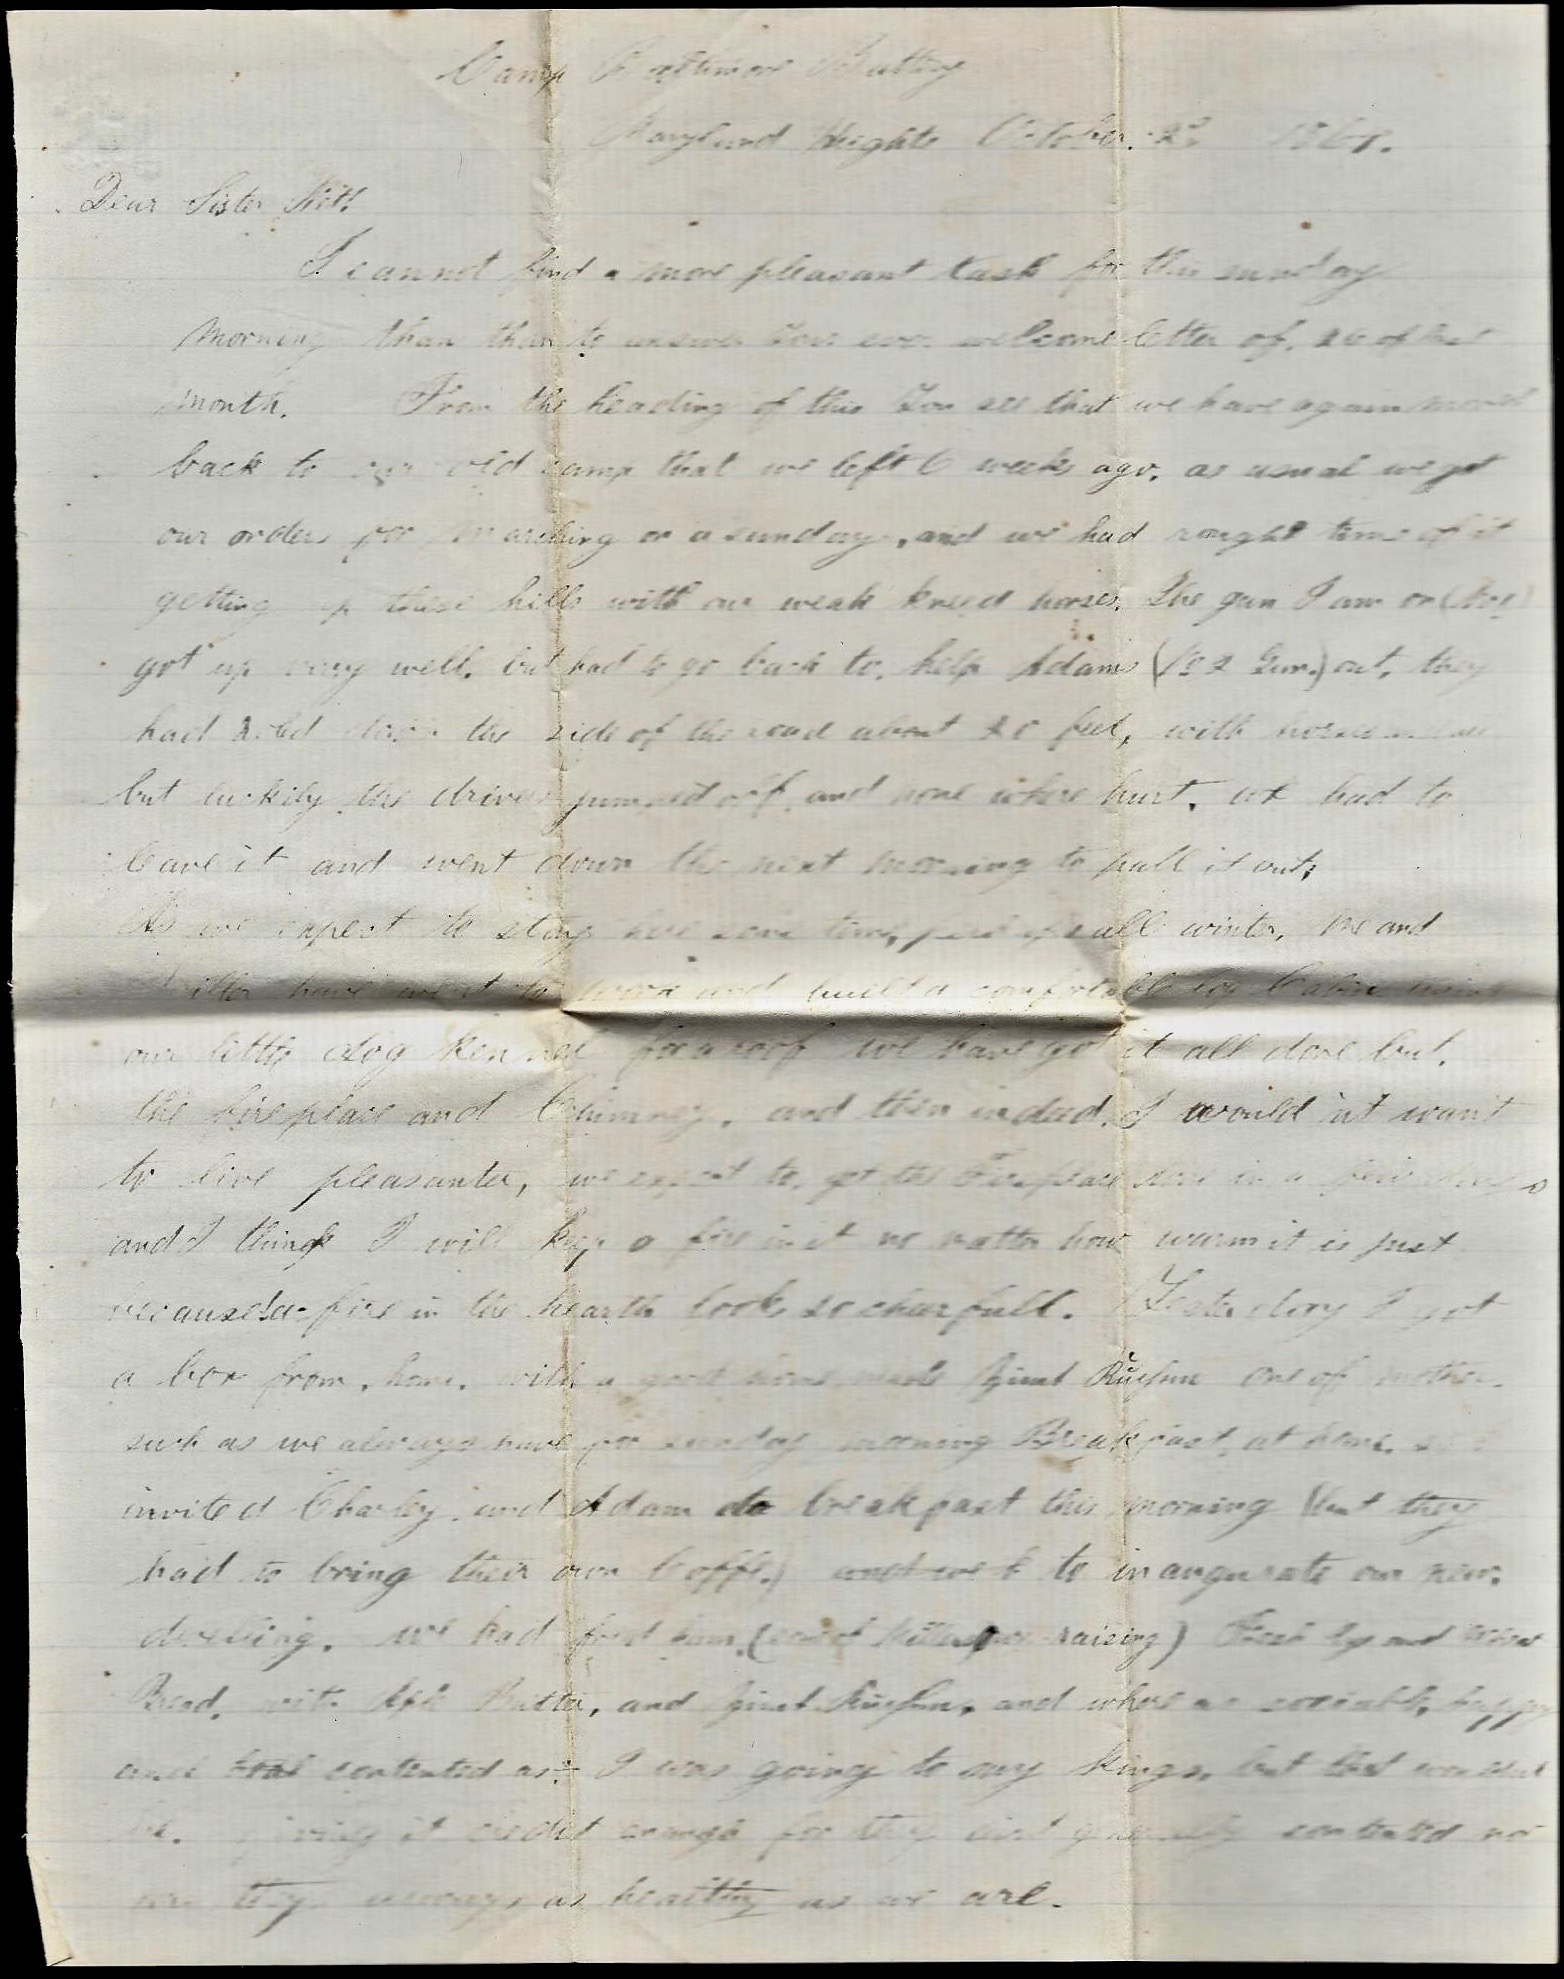 Camp Baltimore Battery
Maryland Heights October. 2d 186
Dear Sister Net!
I cannot find a more pleasant task for this sunday
morning than than to answer Your ever welcome letter of. 26 of last
month. From the heading of this You see that we have again moved
back to our old camp that we left 6 weeks ago. as usual we got
our orders for marching on a sunday, and we had rough time of it
getting up these hills with our weak kneed horses. The gun I am on
got up very well. but had to go back to. help Adams (No 2 Gun.) out, they
had roled down the side of the road about 20 feet, with horses
but luckily the drivers jumped off and none where hurt. we had to
leave it and went down the next morning to pull it out,
As we expect to stay here some time, perhaps all winter, me and
have went to work and built a comfortable log Cabin using
our little dog kennel for a roof we have got it all done but.
the fireplace and Chimney. and then indeed. I would 'nt want
to live pleasanter, we expect to. get the Fireplace done in a few days
and I think I will keep a fire in it no matter how warm it is just
because a fire in the hearth looks so charfull. Yesterday I got
a box from. home. with a good home made Zimt Kuchen one of mothers.
such as we always have for sunday morning Breakfast, at home.
invited Charley. and Adam to breakfast this morning (but they
had to bring their own Coffe.) to inaugurate our new.
dwelling. we had fried ham, (some of Millers own raising) Fresh Eggs and
Bread. with Aple Butter, and Zimt Kuchen, and where as sociable, happy
and contented as- I was going to say Kings. but that
be. giving it credit enough for they aint generally contented nor
are they always as healthy as we are.